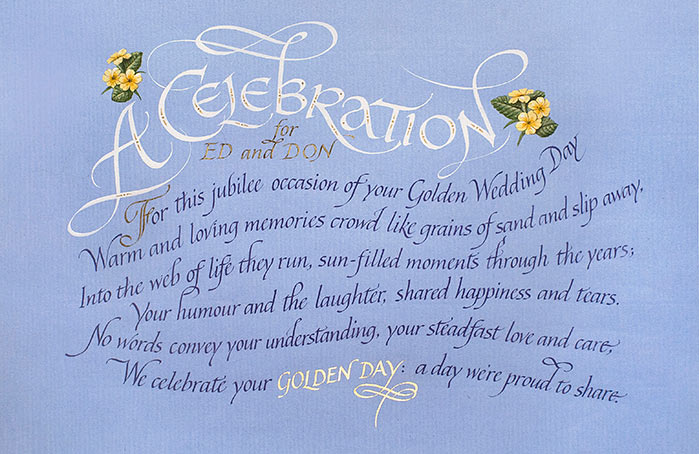 A CELEBRATION
for
ED and DON
For this jubilee occasion of your Golden Wedding Day
Warm and loving memories crowd like grains of sand and slip away,
Into the web of life they run, sun-filled moments through the years;
Your humour and the laughter, shared happiness and tears.
No words convey your understanding, your steadfast love and care,
We celebrate your GOLDEN DAY: a day we're proud to share.